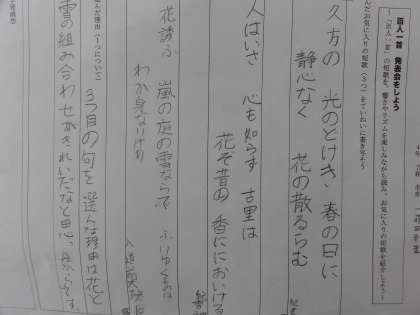 百人一首 発表会をしよう
～「百人一首」の短歌を、響きやリズムを楽しみながら読み、お気に入りの短歌を紹介しよう～
んだお気に入りの短歌(3つ)をていねいに書き写そう
久方の 光のとけき 春の日に
静心なく 花の散るらむ
人はいさ 心も知らず 古里は
花ぞ昔の 香ににおいける
花誘ふ 嵐の庭の雪ならで ふりゆくものは
わか身なりけり
んだ理由(1つについて)
3つ目の句を選んな理由は花と
雪の組み合わせがきれいだなと思ったからです。